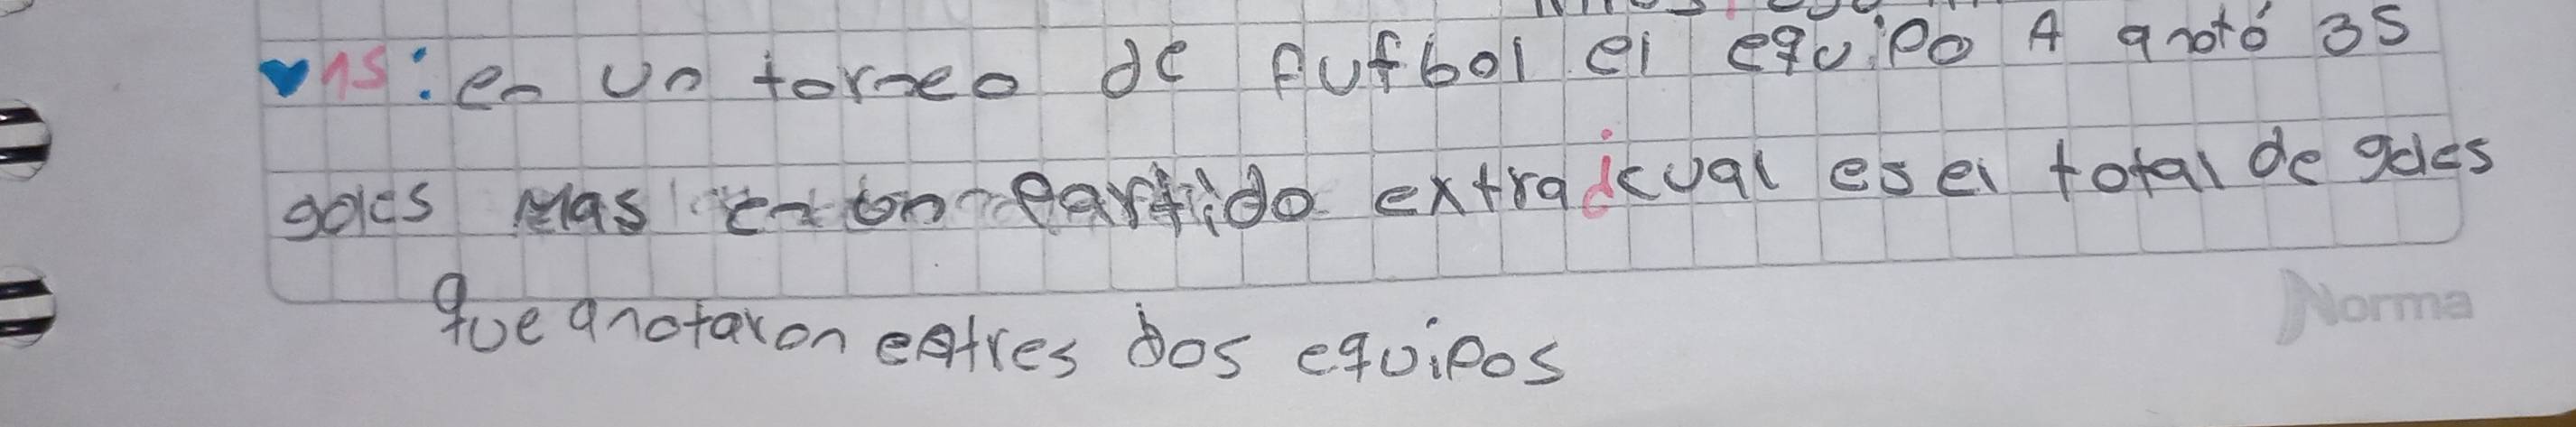 ♥15: en un torneo de fufbol el equipo A anotó 35
goles mas en un partido extra ¿cual es el total de goles
que anotaron entres dos equipos
Norma